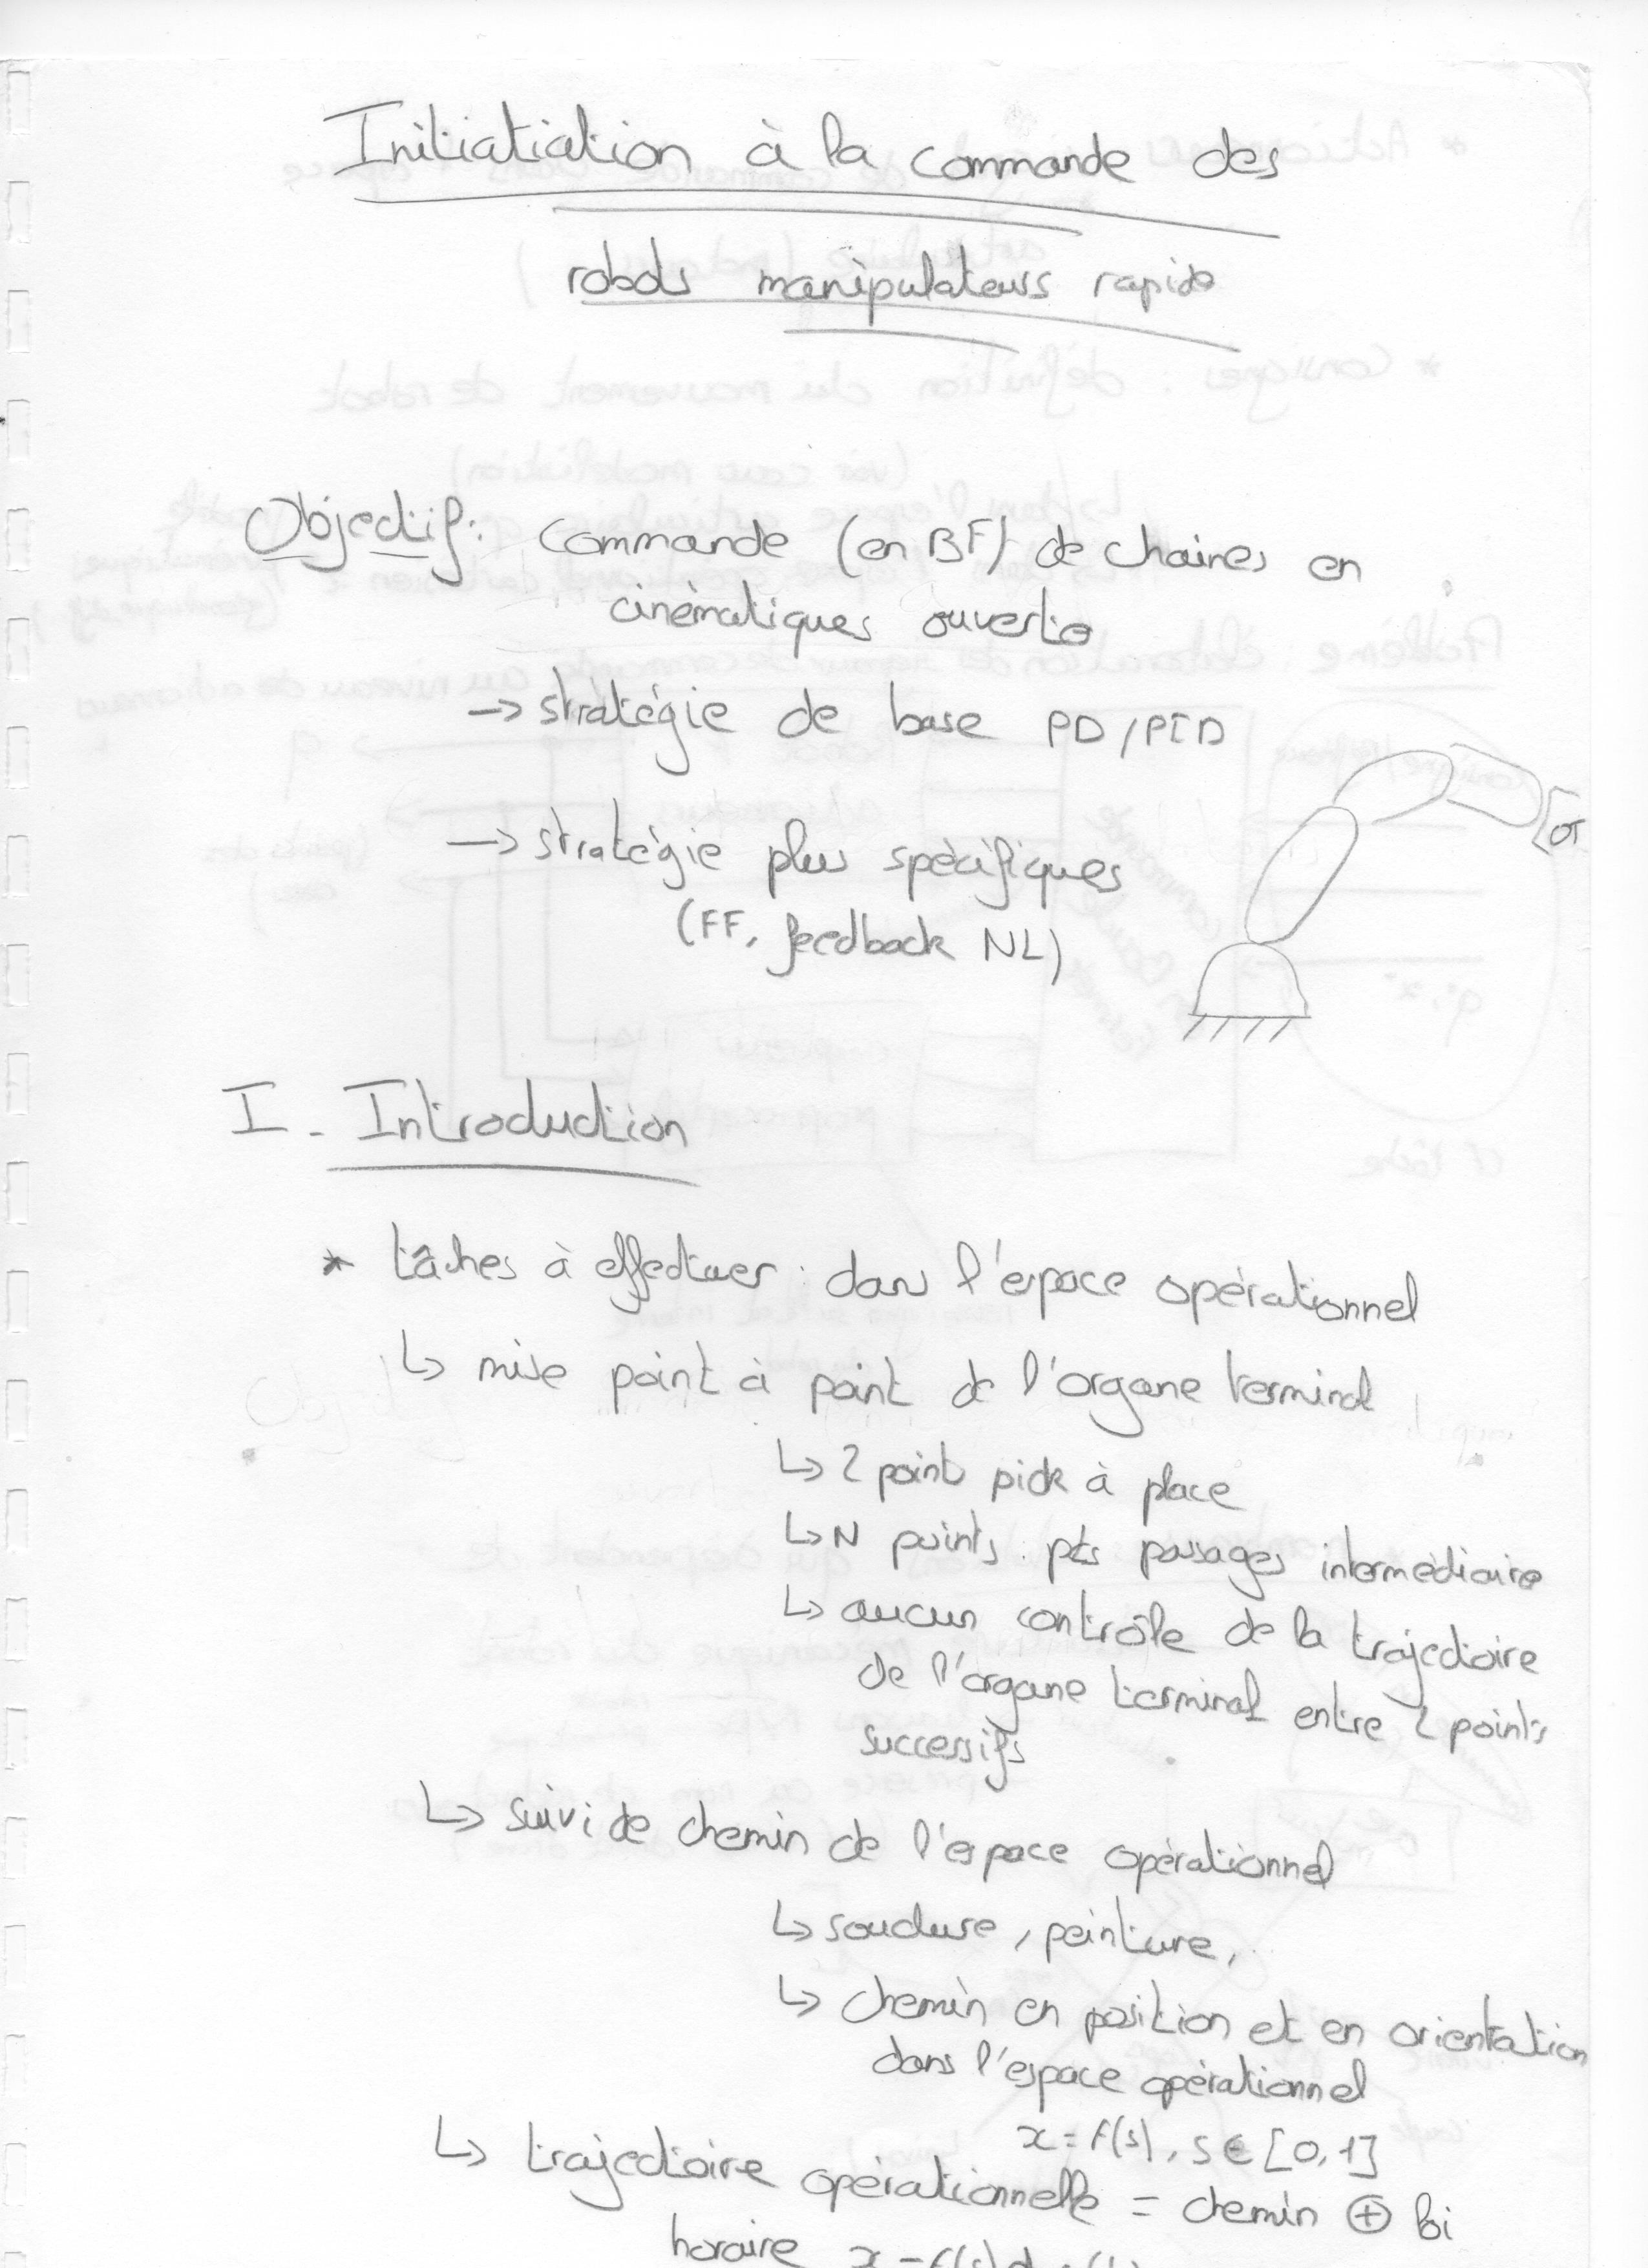 Initiatiation à la commande des
robots manipulateurs rapide
Objectif: Commande (en BF) de chaines en
cinématiques ouverte
-> stratégie de base PD/PID
-> stratégie plus spécifiques
(FF, feedback NL)
OT
I - Introduction
* tâches à effectuer : dans l'espace opérationnel
↳ mise point à point de l'organe terminal
↳ 2 points pick à place
↳ N points : pts passages intermédiaire
↳ aucun contrôle de la trajectoire
de l'organe terminal entre 2 points
successifs
↳ suivi de chemin de l'espace opérationnel
↳ soudure, peinture,
↳ chemin en position et en orientation
dans l'espace opérationnel
x = f(s), s ∈ [0,1]
↳ trajectoire opérationnelle = chemin ⊕ loi
horaire